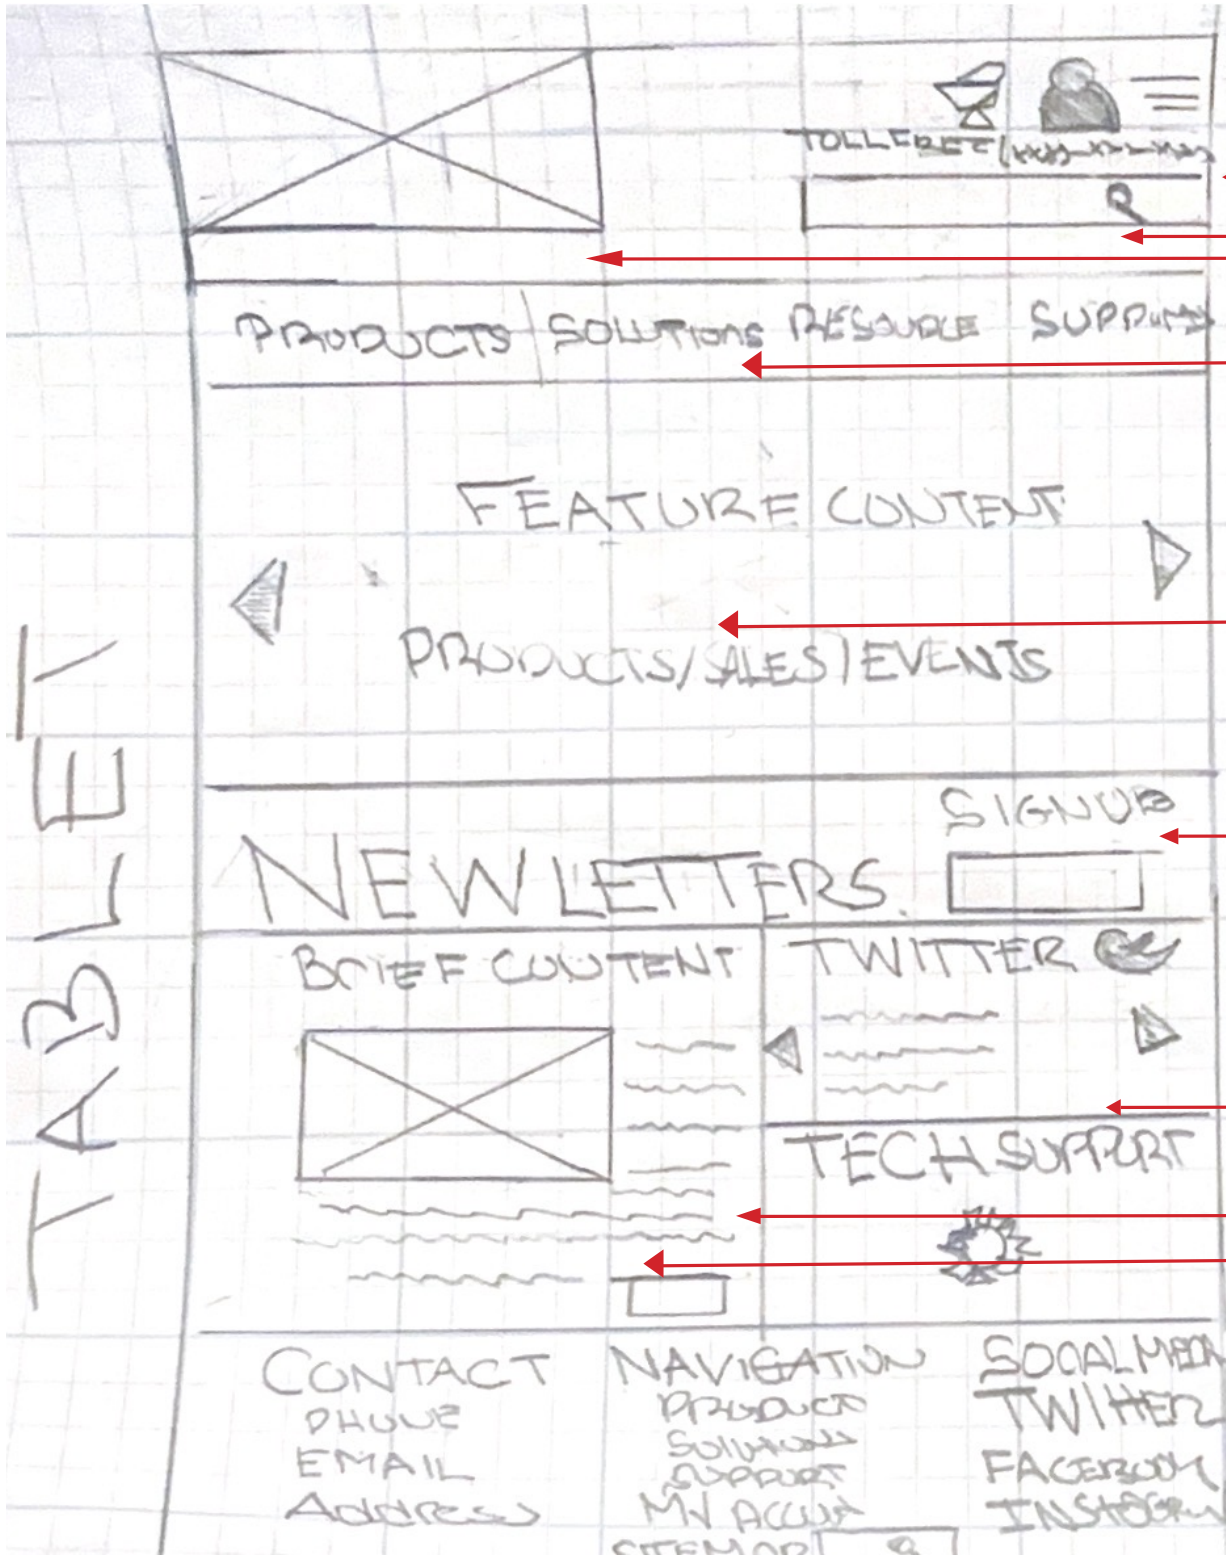 TOLLFREE
PRODUCTS SOLUTIONS RESOURCE SUPPORT
FEATURE CONTENT
PRODUCTS/SALES/EVENTS
SIGNUP
NEWLETTERS.
BRIEF CONTENT
TWITTER
TECH SUPPORT
CONTACT
PHONE
EMAIL
Address
NAVIGATION
PRODUCT
SOLUTIONS
SUPPORT
MY ACCOUNT
SITEMAP
SOCIAL MEDIA
TWITTER
FACEBOOK
INSTAGRAM
TABLET